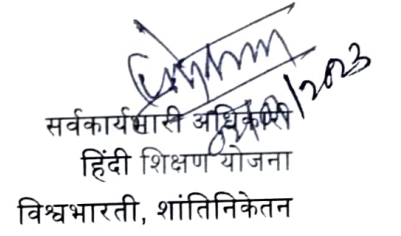 सर्वकार्यभारी अधिकारी
हिंदी शिक्षण योजना
विश्वभारती, शांतिनिकेतन